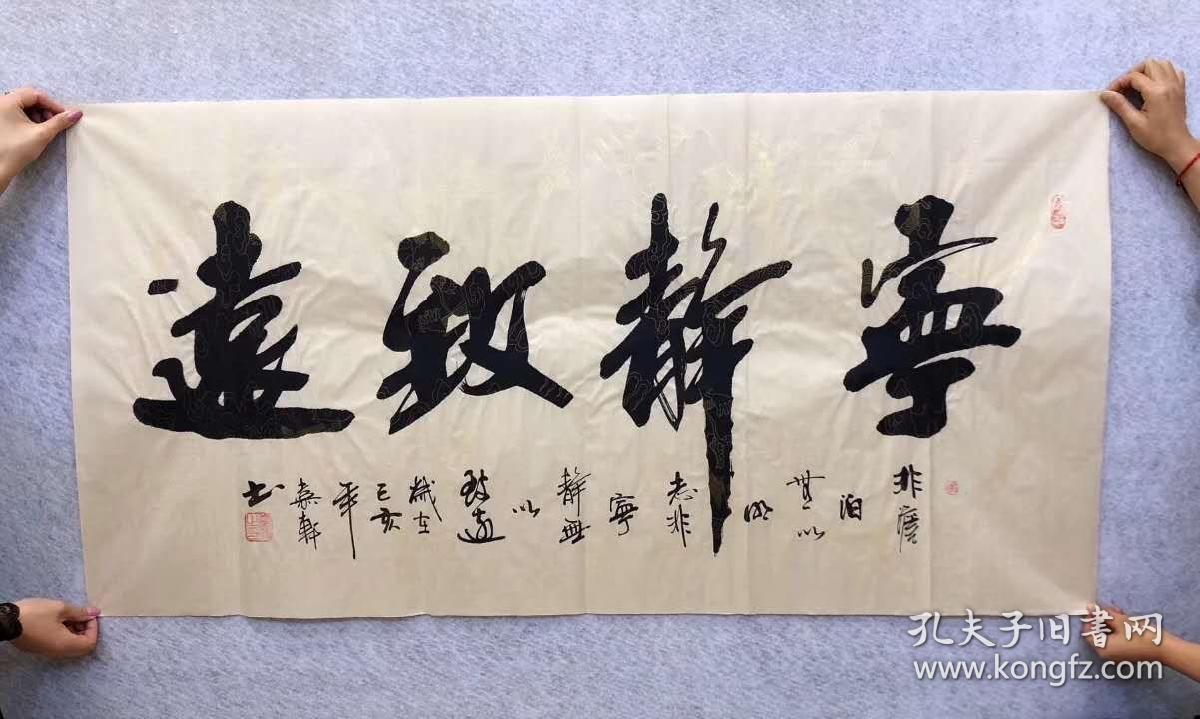 寧靜致遠
非澹
泊
無以
明
志非
寧
靜無
以
致遠
歲在
己亥
年
嘉軒
书
孔夫子旧書网
www.kongfz.com